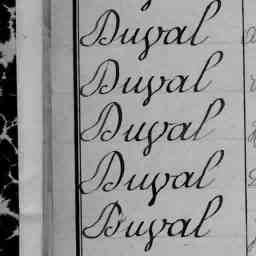 Duval
Duval
Duval
Duval
Duval